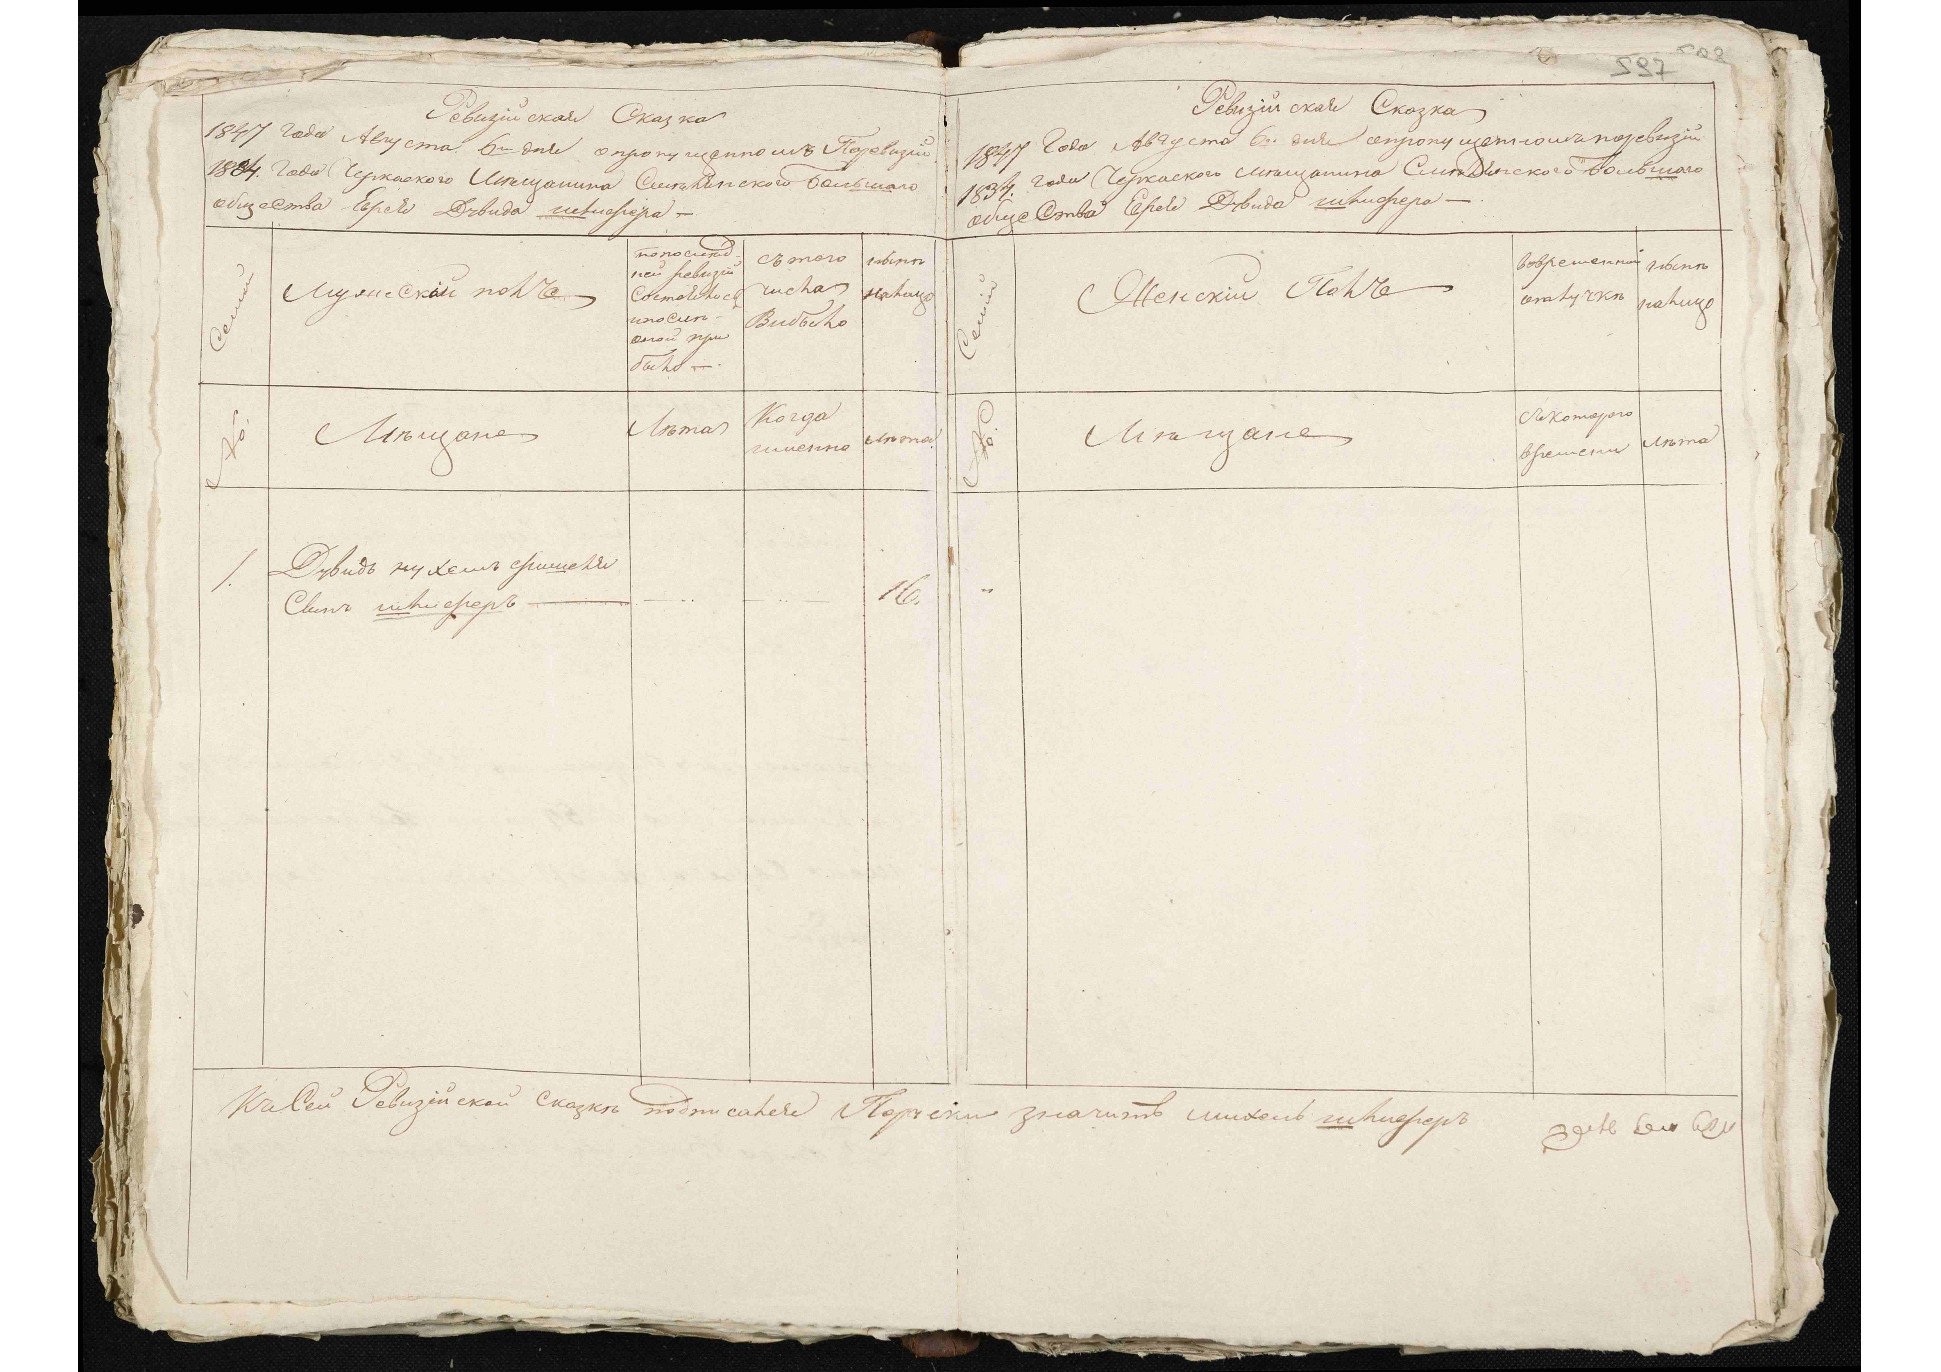 Ревизійская Сказка
1847 года Августа 6го дня опропущенномъ Поревизіи
1834. Года Черкаского Мѣщанина Смѣлянского большаго
общества Еврея Дувида шлифера —
Семей
Мужескій полъ
попослѣд-
ней ревизіи
Состоялоса
ипослѣ-
оной при
было —
съ того
числа
Выбыло
нынѣ
налицо
№.
Мѣщане
Лѣта
Когда
именно
лѣта
1.
Дувидъ нухемъ
Сынъ шлиферъ
16.
597
Ревизійская Сказка
1847 Года Августа 6го дня опропущенномъ поревизіи
1834. года Черкаского мѣщанина Смѣлянского большаго
общества Еврея Дувида шлифера —
Семей
Женскій Полъ
вовременной
отлучкѣ
нынѣ
налицо
№.
Мѣщане
съкоторого
времени
лѣта
"
Къ Сей Ревизійской сказкѣ подписался значитъ шлиферъ